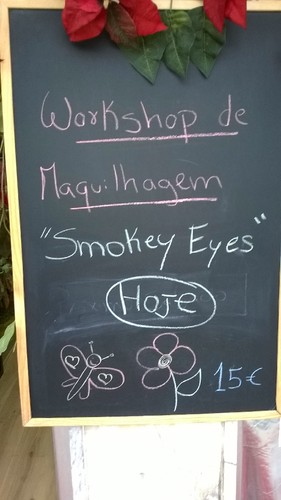 Workshop de
Maquilhagem
"Smokey Eyes"
Hoje
15€